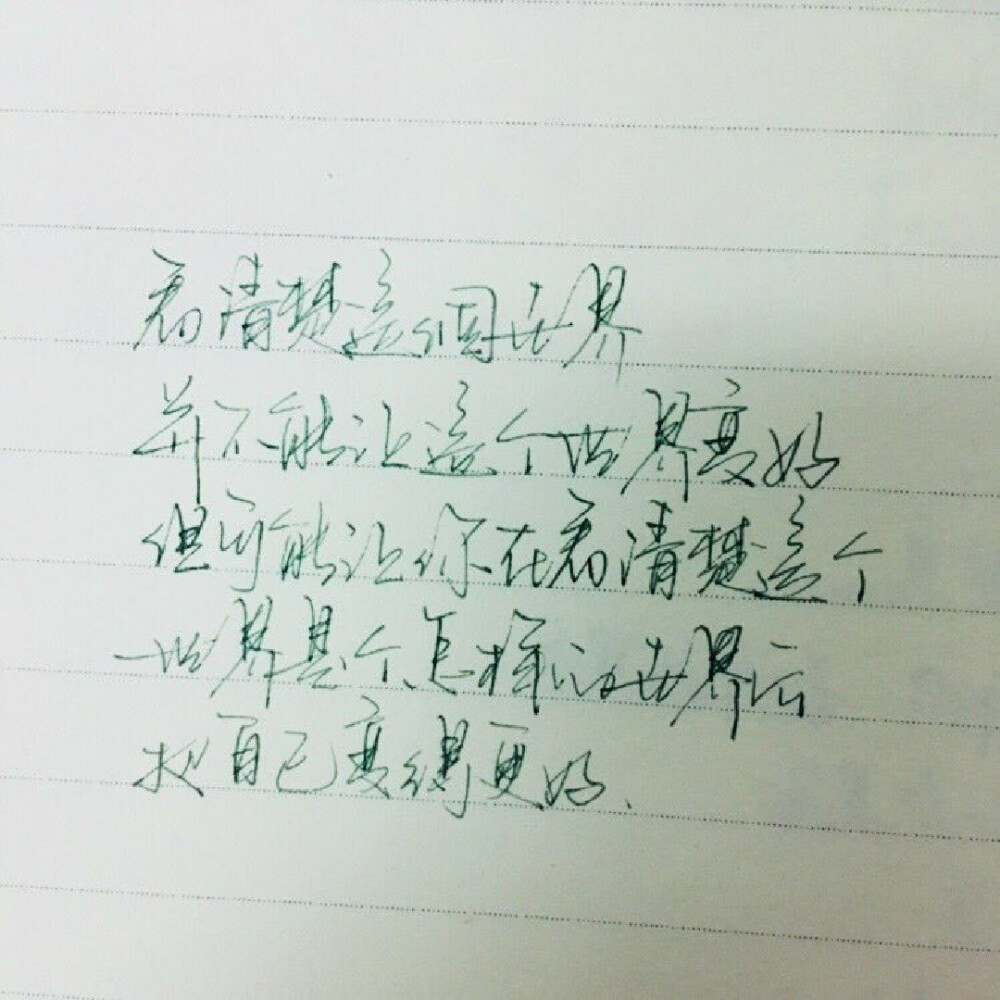 看清楚這個世界
并不能让這个世界变好
但可能让你在看清楚這个
世界是个怎样的世界后
把自己变得更好.